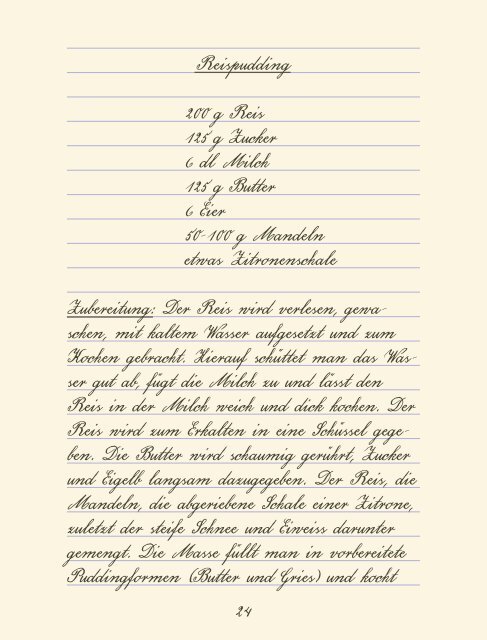 Reispudding
200 g Reis
125 g Zucker
6 dl Milch
125 g Butter
6 Eier
50-100 g Mandeln
etwas Zitronenschale
Zubereitung: Der Reis wird verlesen, gewa-
schen, mit kaltem Wasser aufgesetzt und zum
Kochen gebracht. Hierauf schüttet man das Was-
ser gut ab, fügt die Milch zu und lässt den
Reis in der Milch weich und dick kochen. Der
Reis wird zum Erkalten in eine Schüssel gege-
ben. Die Butter wird schaumig gerührt, Zucker
und Eigelb langsam dazugegeben. Der Reis, die
Mandeln, die abgeriebene Schale einer Zitrone,
zuletzt der steife Schnee und Eiweiss darunter
gemengt. Die Masse füllt man in vorbereitete
Puddingformen (Butter und Gries) und kocht
24